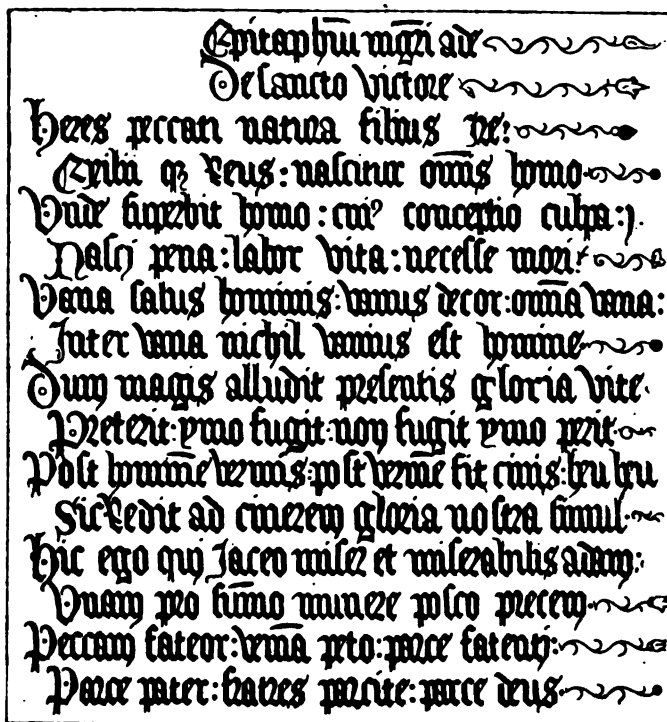 Epitaphiū mgri ade
De sancto victore
Heres peccati natura filius ire:
Exilii qz Reus: nascitur omīs homo
Vnde superbit homo: cui9 conceptio culpa:
Nasci pena: labor vita: necesse mori:
Vana salus hominis: vanus decor: omīa vana:
Inter vana nichil vanius est homine
Dum magis alludit presentis gloria vite
Preterit: ymo fugit: non fugit ymo perit
Post hominē vermis: post vermē fit cinis: heu heu
Sic Redit ad cinerem gloria nostra simul
Hic ego qui Jaceo miser et miserabilis adam:
Vnam pro sūmo munere posco precem
Peccavi fateor: veniā peto: parce fatenti:
Parce pater: fratres parcite: parce deus